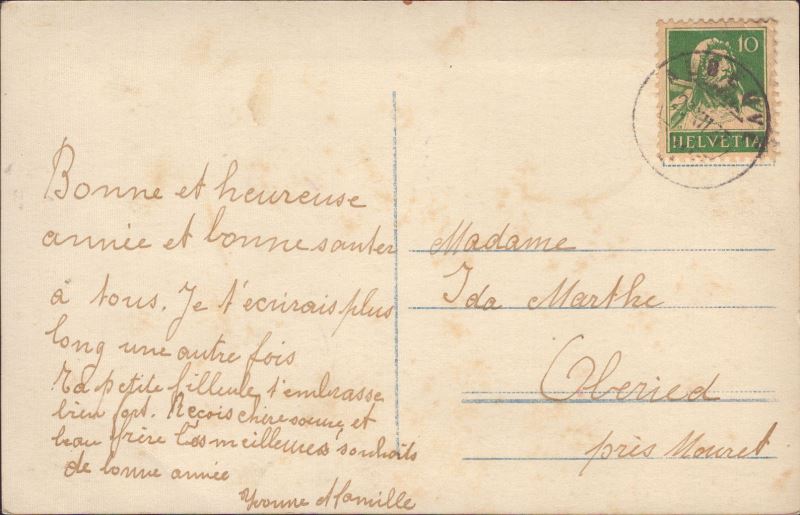 Bonne et heureuse
année et bonne santer
à tous. Je t'écrirais plus
long une autre fois
Ta petite filleule t'embrasse
bien fort. Reçois chère soeur et
beau frère les meilleures souhaits
de bonne année
Yvonne & famille
10
HELVETIA
Madame
Ida Marthe
Oberied
près Mouret